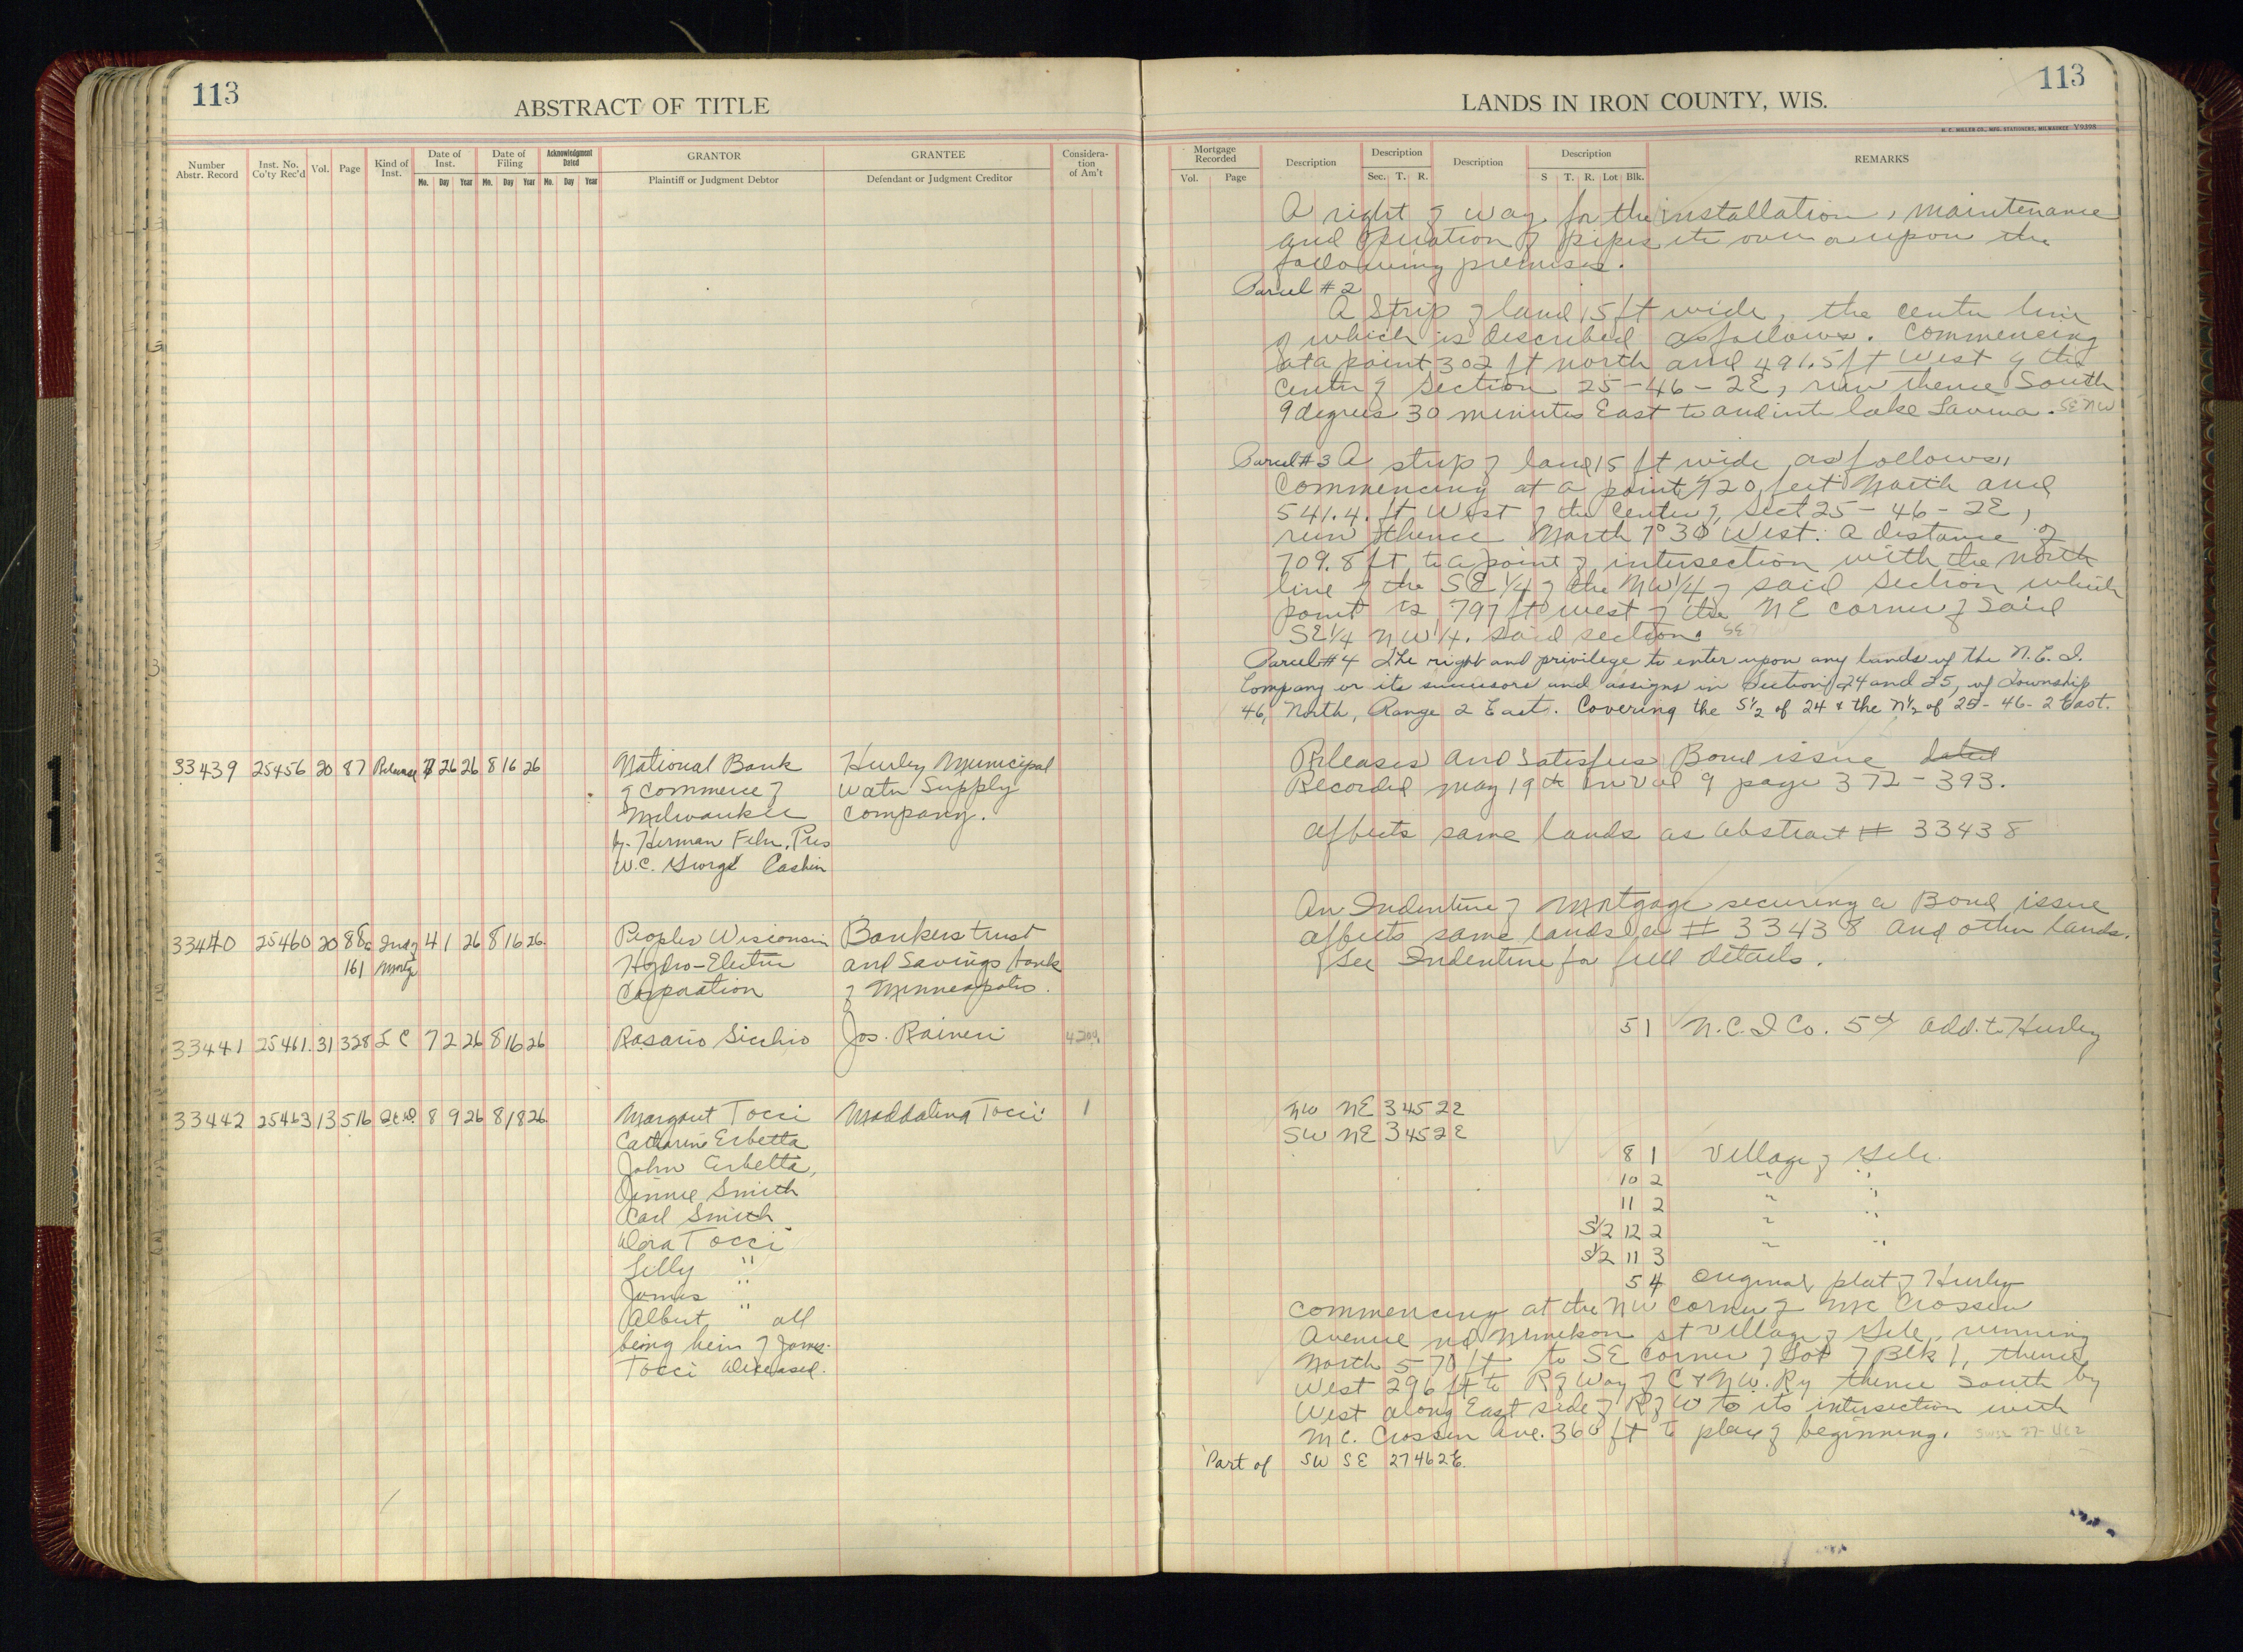 113
ABSTRACT OF TITLE
Number Abstr. Record
Inst. No. Co'ty Rec'd
Vol.
Page
Kind of Inst.
Date of Inst.
Mo. Day Year
Date of Filing
Mo. Day Year
Acknowledgment Dated
Mo. Day Year
GRANTOR
Plaintiff or Judgment Debtor
GRANTEE
Defendant or Judgment Creditor
Considera-tion of Am't
33439 25456 20 87 Release 7 26 26 8 16 26 National Bank Hurley Municipal
of Commerce of Water Supply
Milwaukee Company.
by Herman Fehr, Pres
W.C. George Cashier
33440 25460 20 88 to Ind of 4 1 26 8 16 26 Peoples Wisconsin Bankers trust
161 Mortg Hydro-Electric and Savings bank
Corporation of Minneapolis.
33441 25461 31 328 L C 7 2 26 8 16 26 Rosario Sicchio Jos. Raineri 4200
33442 25463 13 516 8 9 26 8 18 26 Margaret Tocci Maddalina Tocci 1
Catharine Erbetta
John Erbetta,
Jinnie Smith
Carl Smith
Dora Tocci
Lilly "
James "
Albert " all
being heirs of James
Tocci deceased.
113
LANDS IN IRON COUNTY, WIS.
H. C. MILLER CO., MFG. STATIONERS, MILWAUKEE Y9398
Mortgage Recorded
Vol. Page
Description
Description
Sec. T. R.
Description
Description
S T. R. Lot Blk.
REMARKS
A right of way for the installation, maintenance
and operation of pipes etc over or upon the
following premises.
Parcel # 2
A Strip of land 15 ft wide, the center line
of which is described as follows. Commencing
at a point 302 ft north and 491.5 ft West of the
Center of Section 25-46-2E, run thence South
9 degrees 30 minutes East to and into lake Lavina. SE NW
Parcel # 3 A strip of land 15 ft wide, as follows,
Commencing at a point 720 feet North and
541.4. ft West of the Center of Sect 25-46-2E,
run thence North 7° 30 West. a distance of
709.8 ft, to a point of intersection with the north
line of the SE 1/4 of the NW 1/4 of said Section which
point is 797 ft west of the NE corner of said
SE 1/4 NW 1/4. said section. SE
Parcel # 4 The right and privilege to enter upon any lands of the N. C. I.
Company or its successors and assigns in Sections 24 and 25, of Township
46, North, Range 2 East. Covering the S 1/2 of 24 & the N 1/2 of 25-46-2 East.
Releases and Satisfies Bond issue dated
Recorded May 19th in Vol 9 page 372-393.
affects same lands as abstract # 33438
An Indenture of Mortgage securing a Bond issue
affects same lands as # 33438 and other lands.
See Indenture for full details.
5 1 N.C.I Co. 5th Add. to Hurley
NW NE 34 52 2E
SW NE 34 52 E
8 1 Village of Gile.
10 2 " "
11 2 " "
S 1/2 12 2 " "
S 1/2 11 3 " "
5 4 Original plat of Hurley
Commencing at the NW corner of Mc Crossen
Avenue nd st Village of Gile, running
North 570 ft to SE corner of Lot 7 Blk 1, thence
West 296 ft to R of Way of C & N.W. Ry thence South by
West along East side of R of W to its intersection with
Mc. Crossen Ave. 360 ft to place of beginning.
Part of SW SE 27 46 2E.